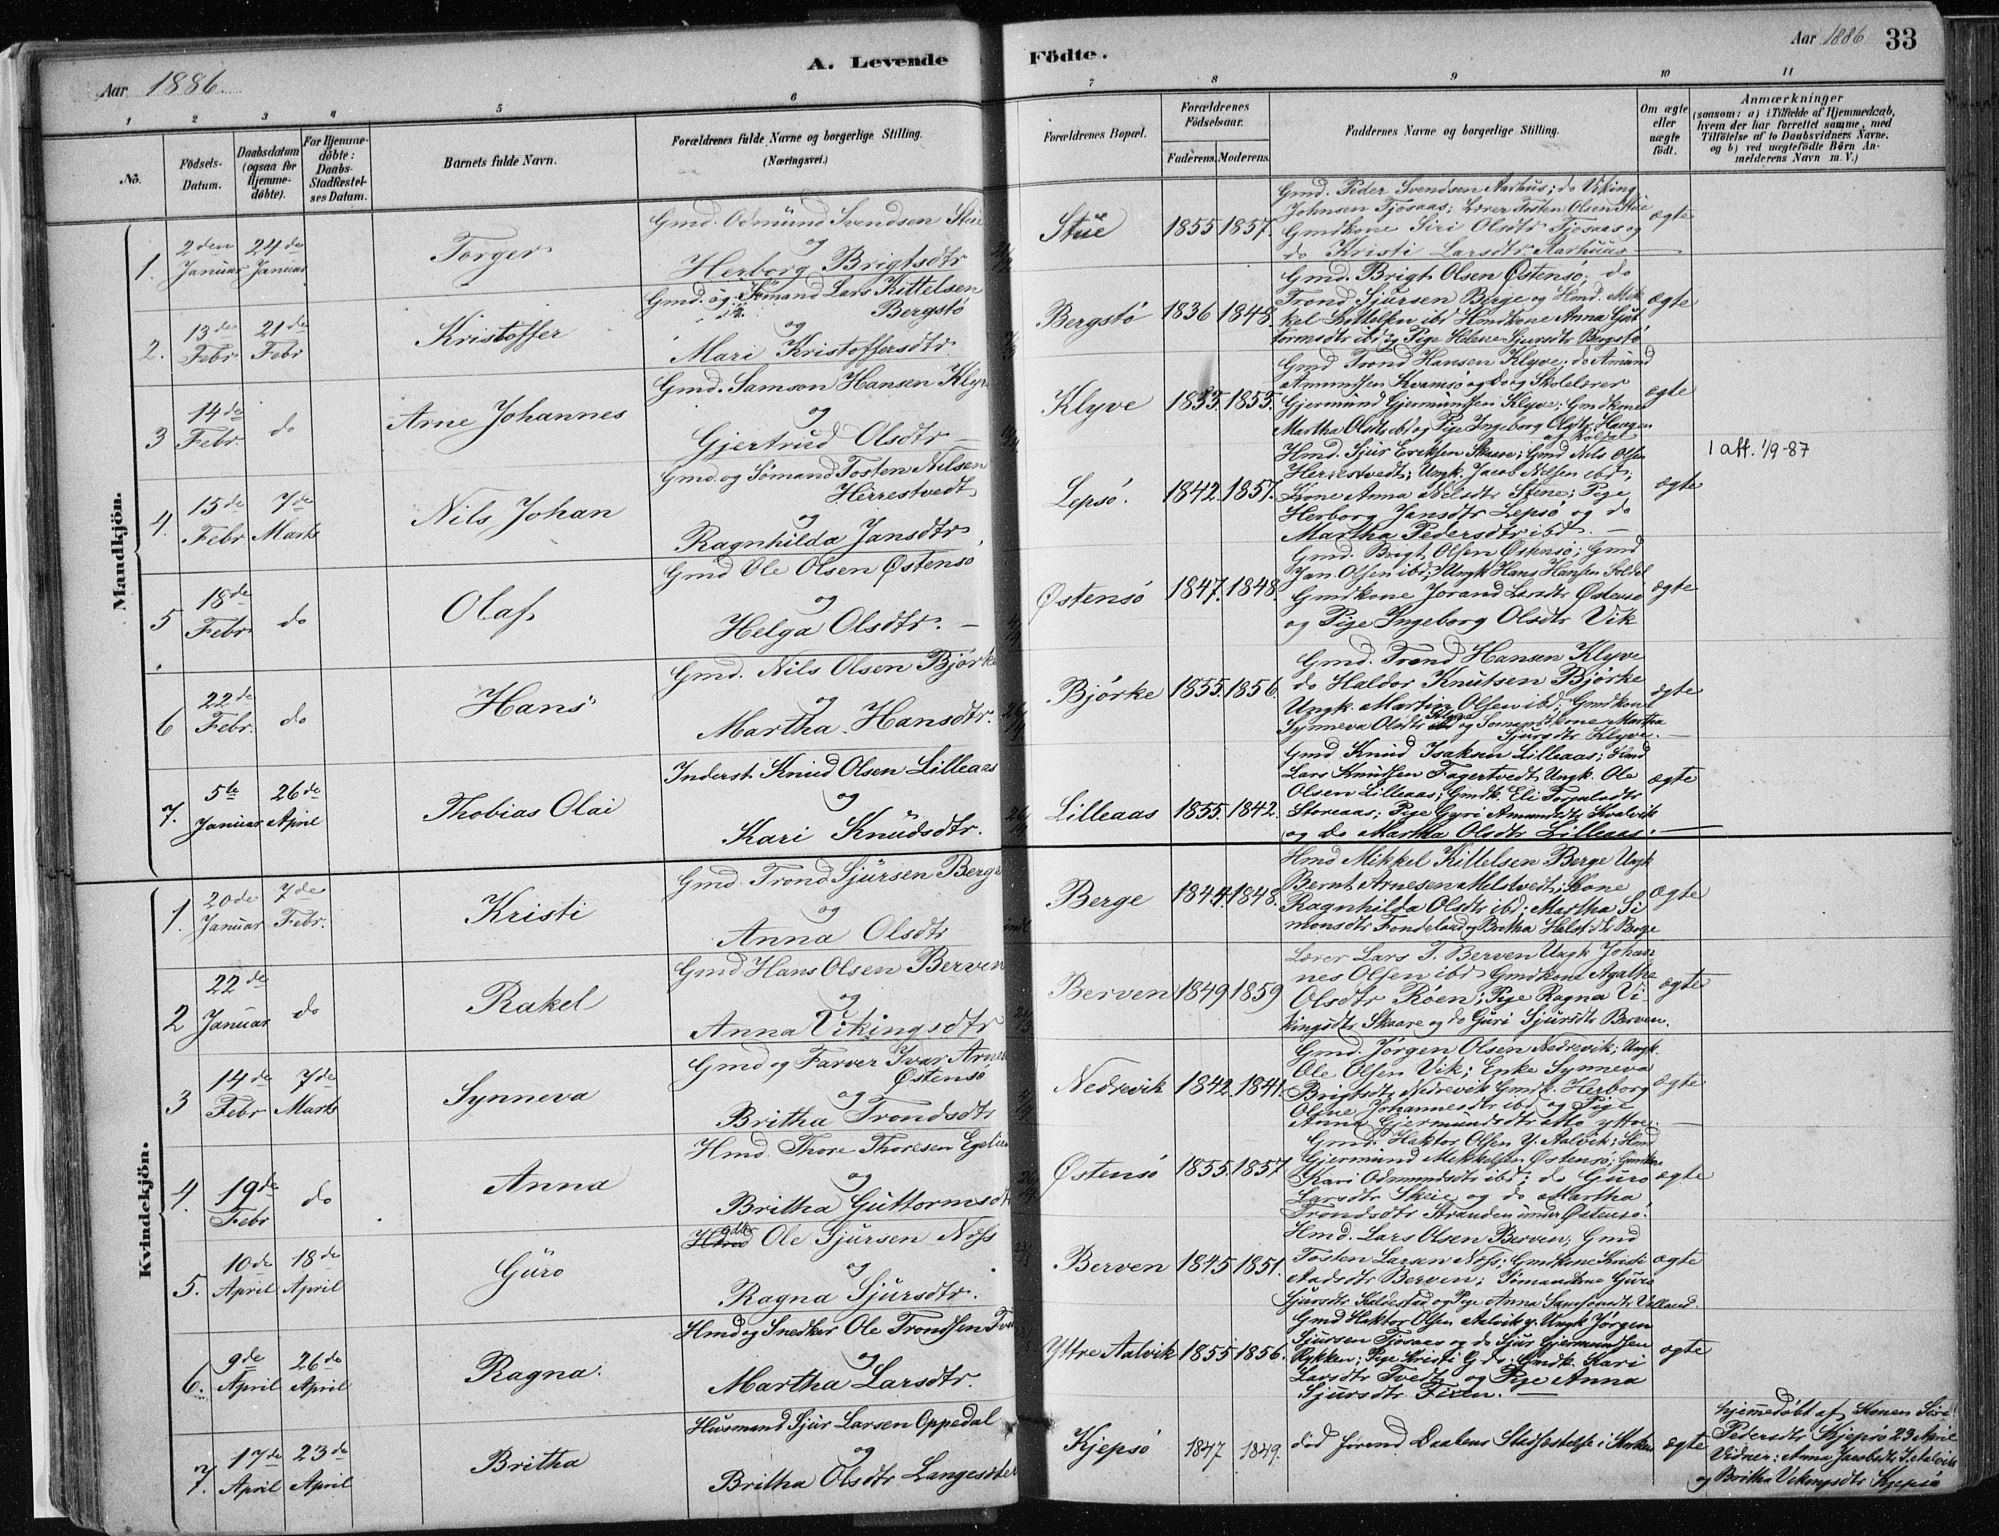 Aar 1886.
A. Levende
Födte.
Aar 1886
33
1 2 3 4 5 6
7 8 9 10 11
No.
Födsels-
Datum.
Daabsdatum
(ogsaa for
Hjemme-
døbte).
For Hjemme-
døbte:
Daabs-
Stadfæstel-
ses Datum.
Barnets fulde Navn.
Forældrenes fulde Navne og borgerlige Stilling.
(Næringsvei.)
Forældrenes Bopæl.
Forældrenes
Födselsaar.
Faderens. Moderens.
Faddernes Navne og borgerlige Stilling.
Om ægte
eller
uægte
født.
Anmærkninger
(saasom: a) i Tilfælde af Hjemmedaab,
hvem der har forrettet samme, med
Tilföielse af to Daabsvidners Navne.
og b) ved uægtefödte Börn An-
melderens Navn m. V.)
Mandkjön.
1. 2den Januar 24de Januar
Torger
Gmd. Odmund Svendsen Stue
og
Herborg Brigtsdtr
Stue 1855 1857.
Gmd. Peder Svendsen Aarhus; do Viking
Johnsen Fjosaas; Lærer Tosten Olsen Stue
Gmdkone Siri Olsdtr Fjosaas og
do Kristi Larsdtr Aarhuus
ægte
2. 13de Febr 21de Febr
Kristoffer
Gmd. og Sömand Lars Kittelsen
Bergstø
og
Mari Kristoffersdtr.
Bergstø 1836 1848.
Gmd. Brigt Olsen Østensø; do
Trond Sjursen Berge og Hmd. Mik
kel Kittelsen ibd Hmdkone Anna Gut
tormsdtr ibd og Pige Helene Sjursdtr Bergstø
ægte
3 14de Febr. do
Arne Johannes
Gmd. Samson Hansen Klyve
og
Gjertrud Olsdtr
Klyve 1853. 1853.
Gmd Trond Hansen Klyve; do Amund
Amundsen Kvamsø og do og Skolelærer
Gjermund Gjermundsen Klyve; Gmdkone
Martha Olsdtr ibd og Pige Ingeborg Olsdtr Haugen
ægte
4. 15de Febr 7de Marts
Nils Johan
Gmd. og Sømand Tosten Nilsen
Hirrestvedt
og
Ragnhilda Jansdtr
Lepsø. 1842. 1857.
Hmd. Sjur Eriksen Skaare; Gmd Nils Olsen
Herrestvedt; Ungk. Jacob Nilsen ibd;
Kone Anna Nilsdtr Stene; Pige
Herborg Jansdtr Lepsø og do
Martha Pedersdtr ibd.
ægte
1 att. 1/9-87
5 18de Febr. do
Olaf
Gmd Ole Olsen Østensø
og
Helga Olsdtr.
Østensø 1847. 1848.
Gmd. Brigt Olsen Østensø; Gmd
Jan Olsen ibd; Ungk Hans Hansen Soldal
Gmdkone Jorand Larsdtr Østensø
og Pige Ingeborg Olsdtr Vik
ægte
6 22de Febr. do
Hans
Gmd. Nils Olsen Bjørke
og
Martha Hansdtr.
Bjørke 1855. 1856.
Gmd. Trond Hansen Klyve
do Haldor Knutsen Bjørke
Ungk. Martin Olsen ibd; Gmdkone
Synneva Olsdtr Klyve og Sømandskone Martha
Sjursdtr Klyve.
ægte
7. 5te Januar 26de April
Thobias Olai
Inderst Knud Olsen Lilleaas
og
Kari Knudsdtr.
Lilleaas 1855. 1842.
Gmd Knud Isaksen Lilleaas; Hmd
Lars Knudsen Fagertvedt, Ungk. Ole
Olsen Lilleaas; Gmdk Eli Torgalsdtr
Storeaas; Pige Gyri Amundsdtr Kvalvik
og do Martha Olsdtr Lilleaas.
ægte
Kvindekjön.
1. 20de Januar 7de Febr.
Kristi
Gmd. Trond Sjursen Berge
og
Anna Olsdtr
Berge 1844 1848.
Hmd Mikkel Kittelsen Berge Ungk
Bernt Arnesen Melstvedt; Kone
Ragnhilda Olsdtr ibd; Martha Si
monsdtr Fondeland og Britha Berge
Ægte
2 22de Januar do
Rakel
Gmd Hans Olsen Berven
og
Anna Vikingsdtr
Berven 1849 1859
Lærer Lars T. Berven Ungk Johan
nes Olsen ibd Gmdkone Agathe
Olsdtr Røen; Pige Ragna Vi
kingsdtr Skaare og do Guri Sjursdtr Berven.
ægte
3 14de Febr 7de Marts
Synneva
Gmd og Farver Ivar Arnes
Østensø
og
Britha Trondsdtr
Nedrevik 1842. 1841.
Gmd. Jørgen Olsen Nedrevik; Ungk.
Ole Olsen Vik; Enke Synneva
Brigtsdtr Nedrevik Gmdk. Herborg
Oline Johannesdtr ibd og Pige
Anna Gjermundsdtr Mo yttre.
ægte
4. 19de Febr do
Anna
Hmd. Thore Thoresen
og
Britha Guttormsdtr
Østensø 1855. 1857
Gmd. Haktor Olsen Y. Aalvik; Hmd
Gjermund Mikkelsen Østensø; Gmdkone
Kari Odmundsdtr ibd; do Guro
Larsdtr Skeie og do Martha
Trondsdtr Stranden under Østensø.
ægte
5. 10de April 18de April
Guro
Ole Sjursen Næss
og
Ragna Sjursdtr.
Berven 1845 1851.
Hmd. Lars Olsen Berven; Gmd
Tosten Larsen Næss; Gmdkone Kristi
Aadsdtr Berven; Sømandskone Guro
Sjursdtr Kaldestad og Pige Anna Samsonsdtr
ægte
6. 9de April 26de April
Ragna.
Hmd og Snedker Ole Trondsen
og
Martha Larsdtr.
Yttre Aalvik 1855 1856.
Gmd Haktor Olsen Aalvik y. Ungk Jørgen
Sjursen Fjosaas og do Sjur Gjermundsen
Rykken; Pige Kristi do; Gmdk. Kari
Larsdtr Tvedt og Pige Anna
Sjursdtr
ægte
7. 17de April 23de April
Britha
Husmand Sjur Larsen Oppedal
og
Britha Olsdtr Langesæter
Kjepsø 1847 1849.
død førend Daabens Stadfæstelse i Kirken
ægte
hjemmedøbt af Konen Siri
Pedersdtr Kjepsø 23 April
Vidner: Anna Jacobsdtr I. Aalvik
og Britha Vikingsdtr Kjepsø